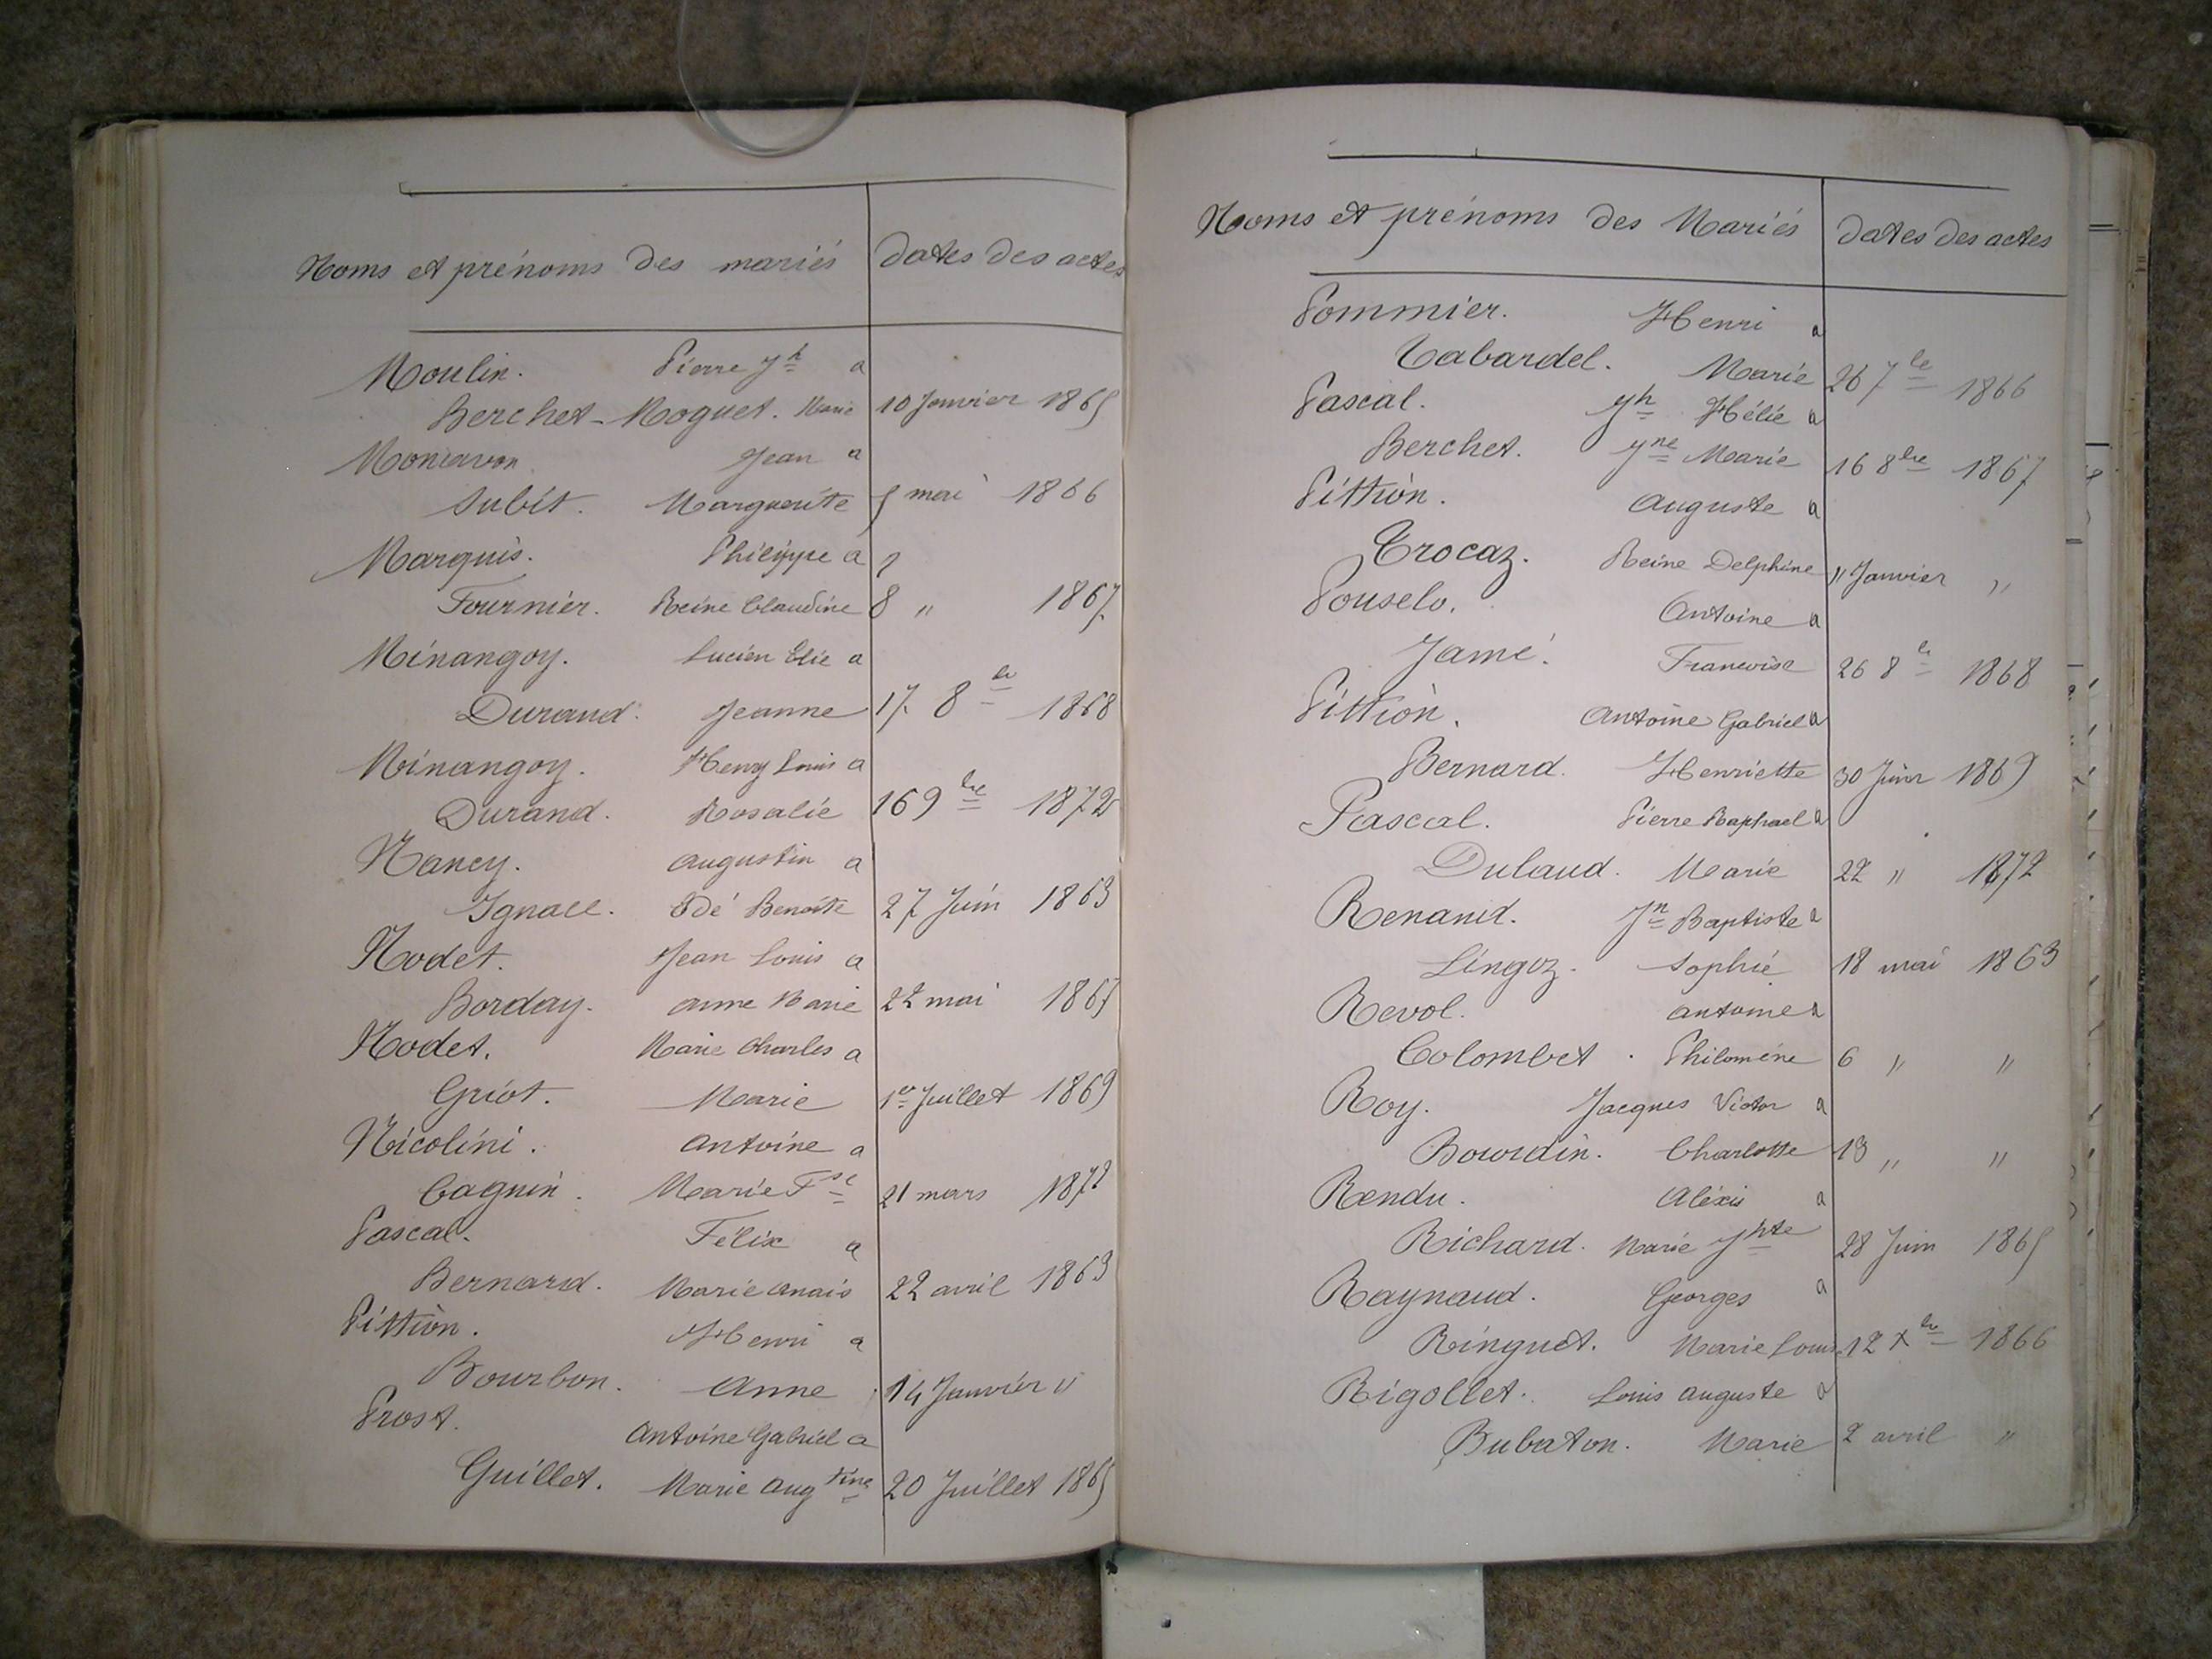 Noms et prénoms des mariés dates des actes
Moulin. Pierre Jh a
Berchet-Moguet. Marie 10 Janvier 1865
Monavon Jean a
Subit. Marguerite 5 mai 1866
Marquis. Philippe a
Fournier. Reine Claudine 8 " 1867
Minangoy. Lucien Elie a
Durand. Jeanne 17 8bre 1868
Minangoy. Henry Louis a
Durand. Rosalie 16 9bre 1872
Nancy. Augustin a
Ignace. Benoite 27 Juin 1863
Nodet. Jean Louis a
Borday. Anne Marie 22 mai 1865
Nodet. Marie Charles a
Griot. Marie 1er Juillet 1869
Nicolini. Antoine a
Cagnin. Marie Fse 21 mars 1872
Pascal. Félix a
Bernard. Marie Anais 22 avril 1863
Pittion. Henri a
Bourbon. Anne 14 Janvier "
Prost. Antoine Gabriel a
Guillet. Marie Augtine 20 Juillet 1865
Noms et prénoms des Mariés dates des actes
Pommier. Henri a
Tabardel. Marie 26 7bre 1866
Pascal. Jh Hélie a
Berchet. Jne Marie 16 8bre 1867
Pittion. Auguste a
Crocaz. Reine Delphine " Janvier "
Antoine a
Jamé. Francoise 26 8bre 1868
Pittion. Antoine Gabriel a
Bernard. Henriette 30 Juin 1869
Pascal. Pierre Raphael a
Dulaud. Marie 22 " 1872
Renand. Jn Baptiste a
Lingoz. Sophie 18 mai 1863
Revol. Antoine a
Colombet. Philomène 6 " "
Roy. Jacques Victor a
Bourdin. Charlotte 13 " "
Rendu. Aléxis a
Richard. Marie Jhte 28 Juin 1865
Raynaud. Georges a
Ringuet. Marie Louis 12 Xbre 1866
Rigollet. Louis Auguste a
Bubaton. Marie 2 avril "